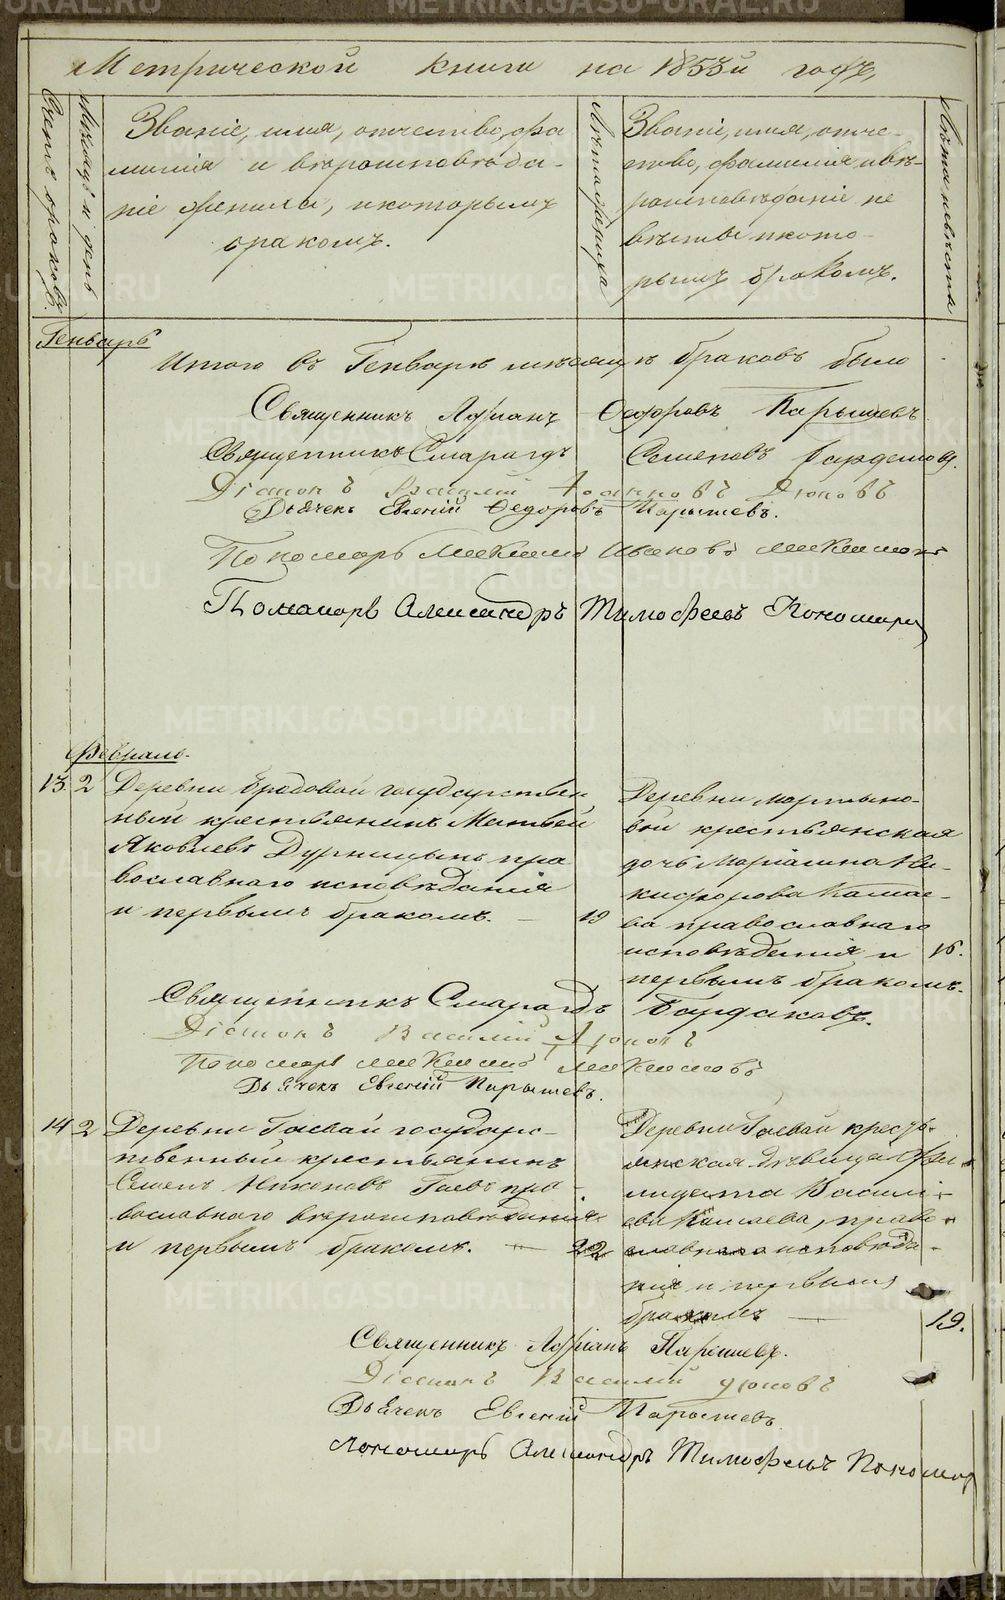 Метрической книги на 1853й годъ,
Счетъ браковъ.
Мѣсяцъ и день
Званіе, имя, отчество, фа
милія и вѣроисповѣда-
ніе жениха, и которымъ
бракомъ.
Лѣта жениха
Званіе, имя, отче-
ство, фамилія и вѣ-
роисповѣданіе не
вѣсты и кото-
рымъ бракомъ.
Лѣта невѣсты
Генварь
Итого въ Генварѣ мѣсяцѣ браковъ было
Священникъ Адріанъ Федоровъ Парышевъ
Священникъ Смарагдъ Семеновъ
Діаконъ Василій Іоанновъ Дюковъ
Дьячекъ Евгеній Федоровъ Парышевъ.
Пономарь Ивановъ
Пономарь Александръ Тимофеевъ Пономарев
Февраль.
13. 2 Деревни Бродовой государствен
ный крестьянинъ Матвей
Яковлевъ Дурницынъ пра
вославнаго исповѣданія
и первымъ бракомъ. — 19
Деревни Мартыно-
вой крестьянская
дочь Маріамна Ни-
кифорова Камае-
ва православнаго
исповѣданія и 16.
первымъ бракомъ.
Священникъ Смарагдъ
Діаконъ Василій Дюковъ
Пономарь
Дьячекъ Евгеній Парышевъ.
14 2 Деревни Гаевай государс-
твенный крестьянинъ
Семенъ Никоновъ Гаевъ пра-
вославнаго вѣроисповѣданія
и первымъ бракомъ. — 22
Деревни Гаевай кресть-
янская дѣвица
Васили-
ева Камаева, право-
славнаго исповѣда-
нія и первымъ
бракомъ — 19.
Священникъ Адріанъ Парышевъ.
Діаконъ Василій Дюковъ
Дьячекъ Евгеній Парышевъ
Пономарь Александръ Тимофеевъ Пономар
METRIKI.GASO-URAL.RU